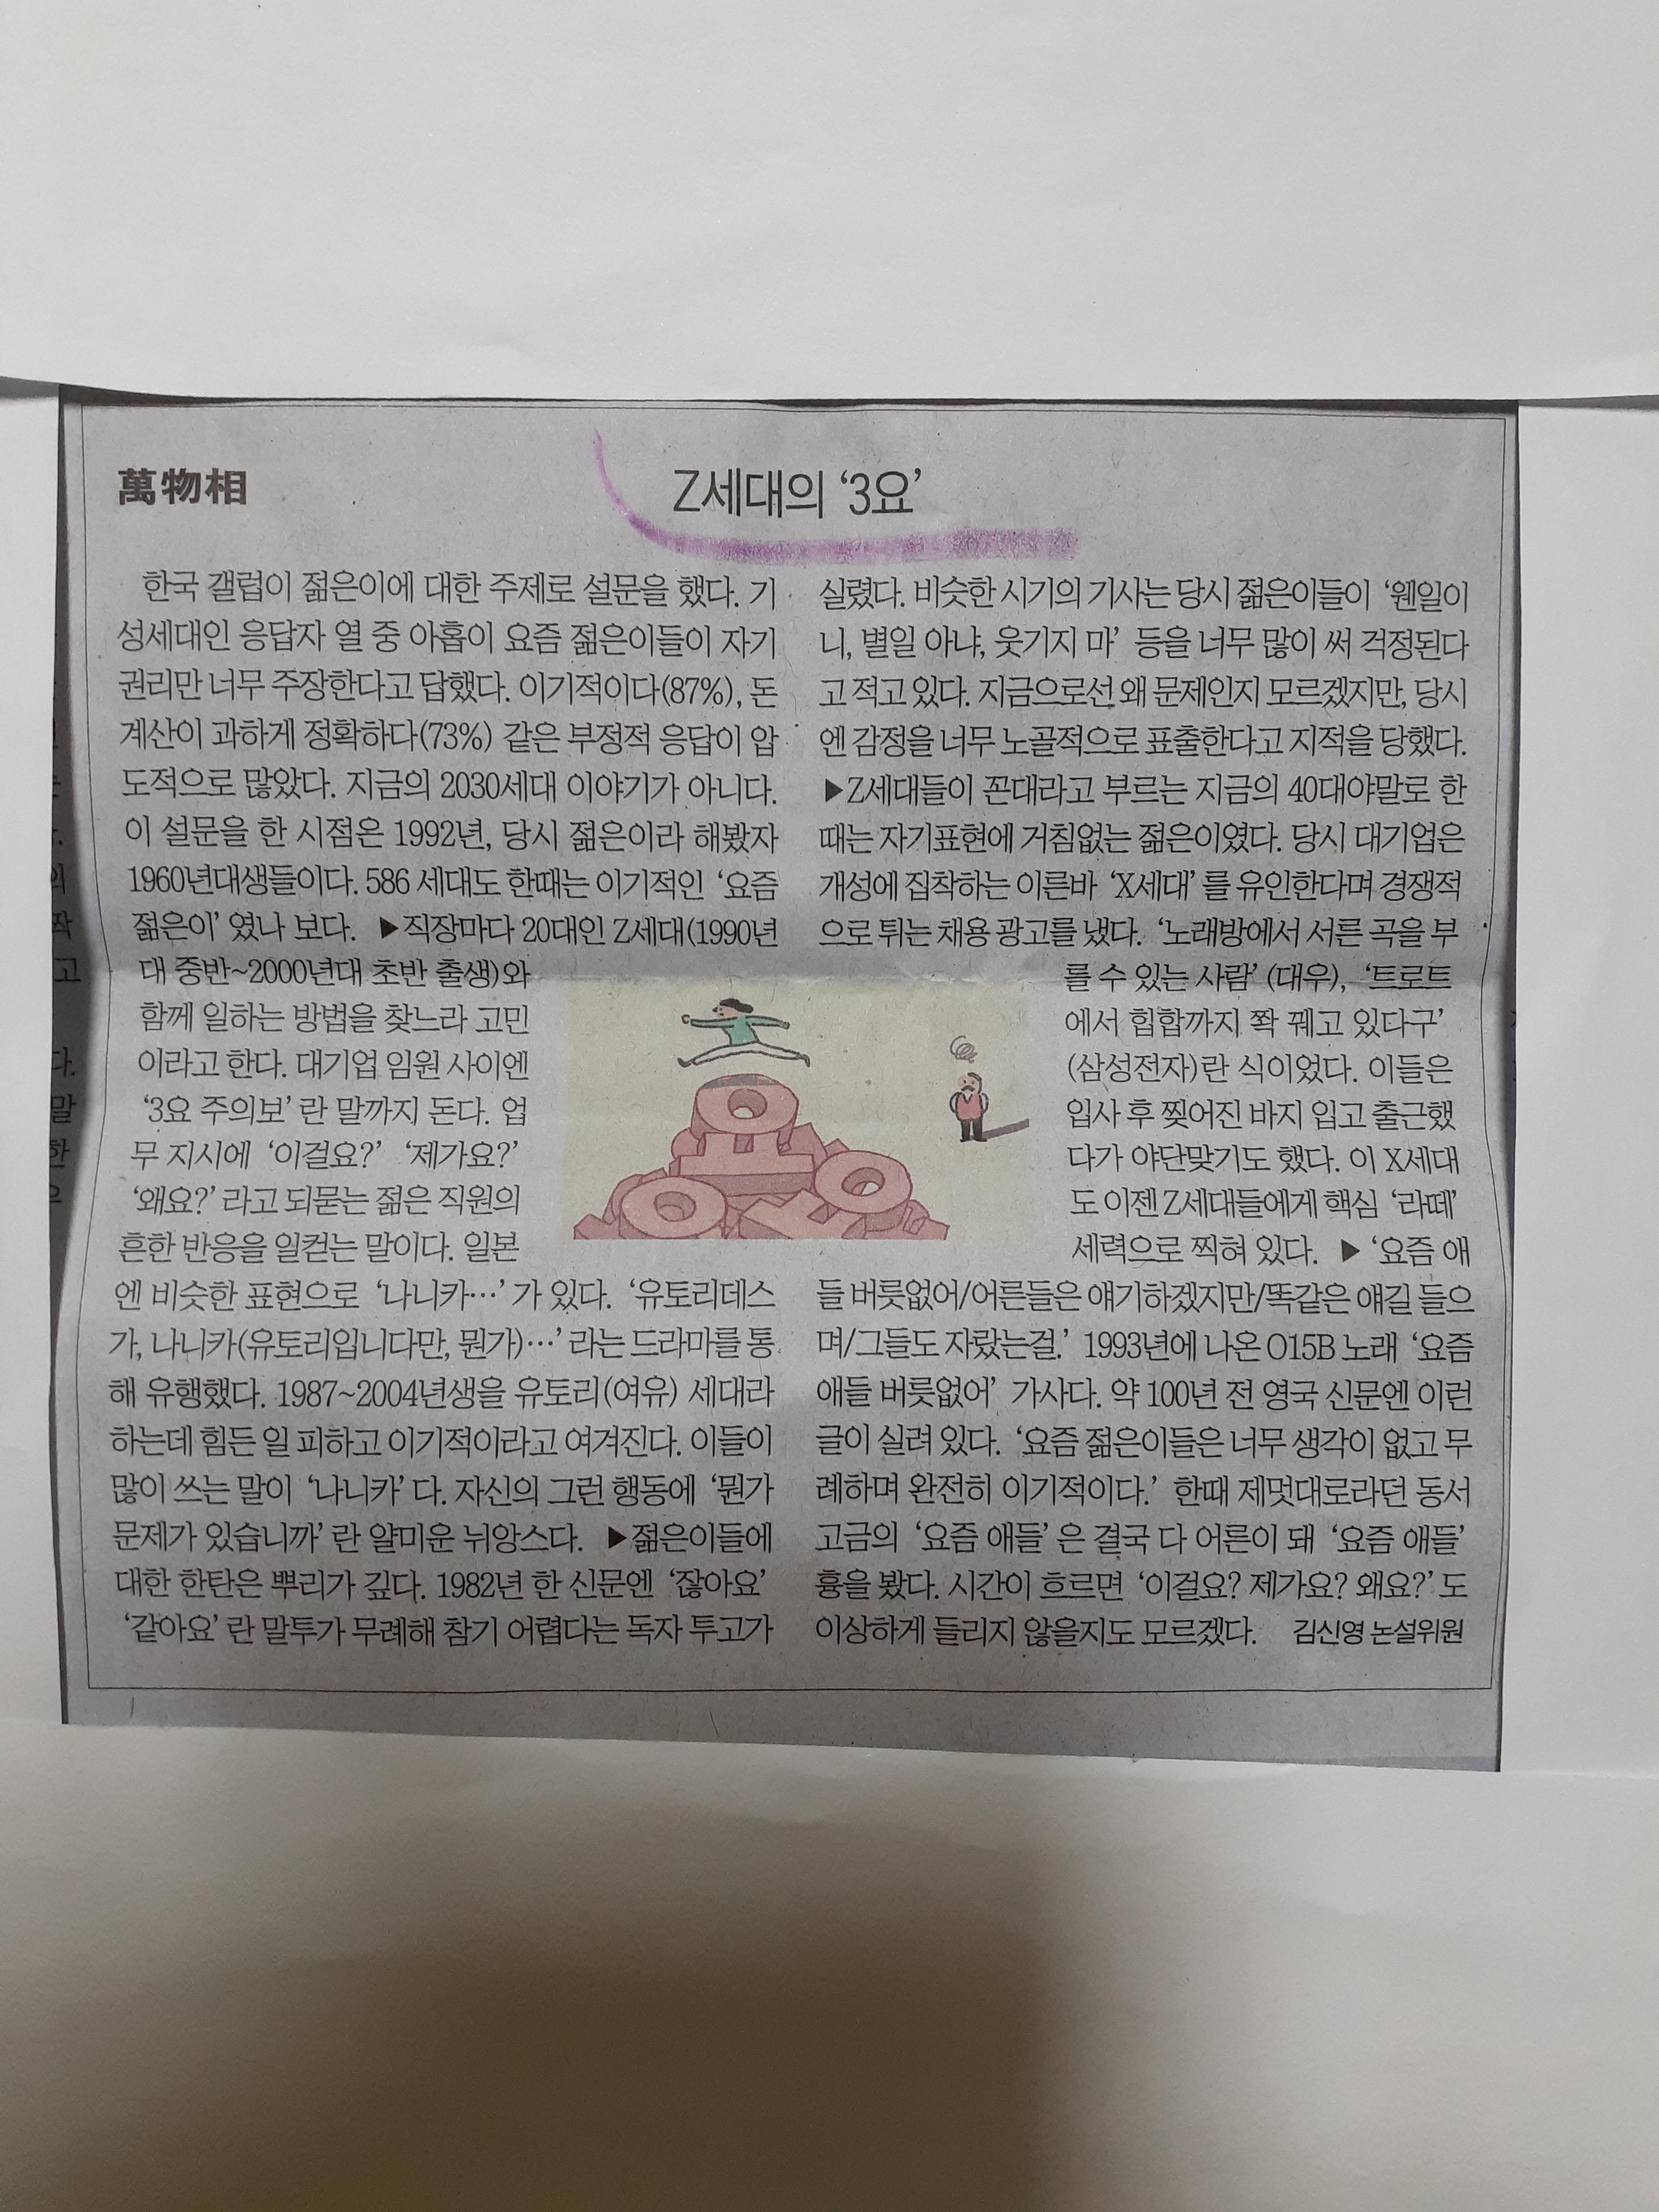 萬物相
Z세대의 ‘3요’
한국 갤럽이 젊은이에 대한 주제로 설문을 했다. 기
성세대인 응답자 열 중 아홉이 요즘 젊은이들이 자기
권리만 너무 주장한다고 답했다. 이기적이다(87%), 돈
계산이 과하게 정확하다(73%) 같은 부정적 응답이 압
도적으로 많았다. 지금의 2030세대 이야기가 아니다.
이 설문을 한 시점은 1992년, 당시 젊은이라 해봤자
1960년대생들이다. 586 세대도 한때는 이기적인 ‘요즘
젊은이’ 였나 보다. ▶직장마다 20대인 Z세대(1990년
대 중반~2000년대 초반 출생)와
함께 일하는 방법을 찾느라 고민
이라고 한다. 대기업 임원 사이엔
‘3요 주의보’ 란 말까지 돈다. 업
무 지시에 ‘이걸요?’ ‘제가요?’
‘왜요?’ 라고 되묻는 젊은 직원의
흔한 반응을 일컫는 말이다. 일본
엔 비슷한 표현으로 ‘나니카…’ 가 있다. ‘유토리데스
가, 나니카(유토리입니다만, 뭔가)…’ 라는 드라마를 통
해 유행했다. 1987~2004년생을 유토리(여유) 세대라
하는데 힘든 일 피하고 이기적이라고 여겨진다. 이들이
많이 쓰는 말이 ‘나니카’ 다. 자신의 그런 행동에 ‘뭔가
문제가 있습니까’ 란 얄미운 뉘앙스다. ▶젊은이들에
대한 한탄은 뿌리가 깊다. 1982년 한 신문엔 ‘잖아요’
‘같아요’ 란 말투가 무례해 참기 어렵다는 독자 투고가
실렸다. 비슷한 시기의 기사는 당시 젊은이들이 ‘웬일이
니, 별일 아냐, 웃기지 마’ 등을 너무 많이 써 걱정된다
고 적고 있다. 지금으로선 왜 문제인지 모르겠지만, 당시
엔 감정을 너무 노골적으로 표출한다고 지적을 당했다.
▶Z세대들이 꼰대라고 부르는 지금의 40대야말로 한
때는 자기표현에 거침없는 젊은이였다. 당시 대기업은
개성에 집착하는 이른바 ‘X세대’ 를 유인한다며 경쟁적
으로 튀는 채용 광고를 냈다. ‘노래방에서 서른 곡을 부
를 수 있는 사람’ (대우), ‘트로트
에서 힙합까지 쫙 꿰고 있다구’
(삼성전자)란 식이었다. 이들은
입사 후 찢어진 바지 입고 출근했
다가 야단맞기도 했다. 이 X세대
도 이젠 Z세대들에게 핵심 ‘라떼’
세력으로 찍혀 있다. ▶ ‘요즘 애
들 버릇없어/어른들은 얘기하겠지만/똑같은 얘길 들으
며/그들도 자랐는걸.’ 1993년에 나온 O15B 노래 ‘요즘
애들 버릇없어’ 가사다. 약 100년 전 영국 신문엔 이런
글이 실려 있다. ‘요즘 젊은이들은 너무 생각이 없고 무
례하며 완전히 이기적이다.’ 한때 제멋대로라던 동서
고금의 ‘요즘 애들’ 은 결국 다 어른이 돼 ‘요즘 애들’
흉을 봤다. 시간이 흐르면 ‘이걸요? 제가요? 왜요?’ 도
이상하게 들리지 않을지도 모르겠다. 김신영 논설위원